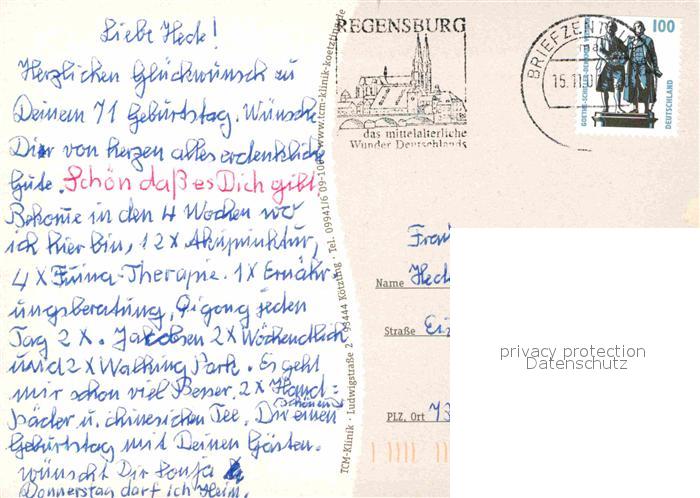 Liebe Heck!
Herzlichen Glückwunsch zu
Deinem 71 Geburtstag. Wünsche
Dir von herzen alles erdenklich
Gute. Schön daß es Dich gibt.
Bekome in den 4 Wochen wo
ich hier bin, 12 x Akupunktur,
4 x Tuina-Therapie. 1 x Ernähr
ungsberatung, Qigong jeden
Tag 2 x. Jacobsen 2 x Wöchendlich
und 2 x Walking Park. Es geht
mir schon viel Besser. 2 x Hand-
bäder u. chinesichen Tee. Dir einen
schönen
Geburtstag mit Deinen Gästen.
wünscht Dir Sonja
Donnerstag darf ich Heim.
TCM-Klinik · Ludwigstraße 2 · 93444 Kötzting · Tel. 09941/6 09-10 www.tcm-klinik-koetzting.de
REGENSBURG
das mittelalterliche
Wunder Deutschlands
BRIEFZENTR
15.11.0
GOETHE-SCHILLER-DENKMAL
100
DEUTSCHLAND
Frau
Name Heck
Straße
PLZ, Ort 73
privacy protection
Datenschutz